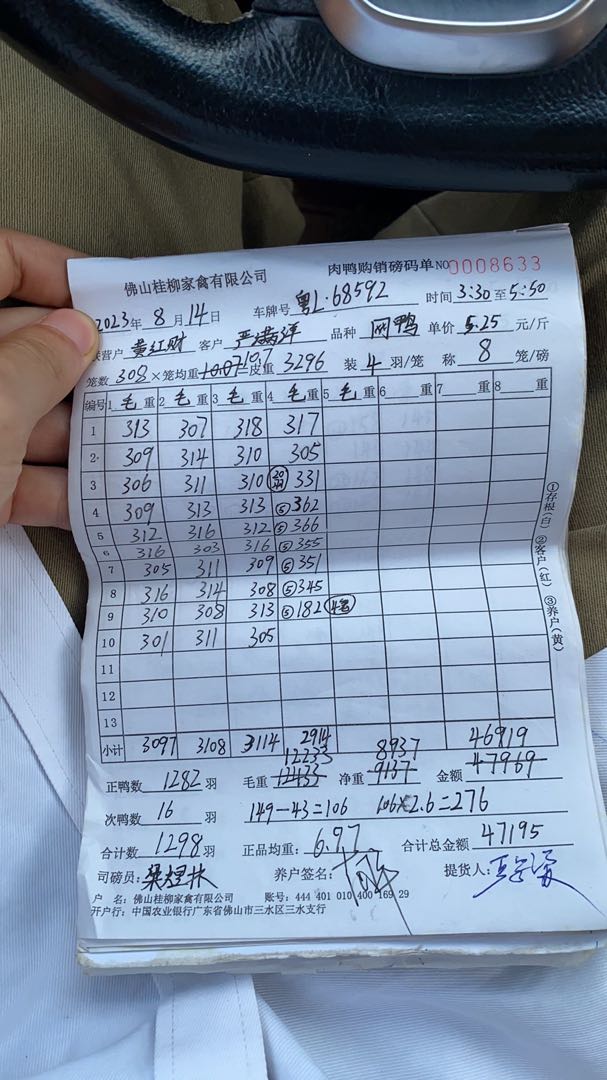 佛山桂柳家禽有限公司 肉鸭购销磅码单 NO 0008633
2023年 8月 14日 车牌号 粤L·68592 时间 3:30 至 5:50
营户 黄红财 客户 严满洋 品种 网鸭 单价 5.25 元/斤
笼数 308 × 笼均重 10.07 10.7 = 皮重 3296 装 4 羽/笼 称 8 笼/磅
编号 1 毛 重 2 毛 重 3 毛 重 4 毛 重 5 毛 重 6 重 7 重 8 重
1 313 307 318 317
2 309 314 310 305
3 306 311 310 331
4 309 313 313 ⑤ 362
5 312 316 312 ⑤ 366
6 316 303 316 ⑤ 355
7 305 311 309 ⑤ 351
8 316 314 308 ⑤ 345
9 310 308 313 ⑤ 182
10 301 311 305
11
12
13
小计 3097 3108 3114 2914
12233 8937 46919
正鸭数 1282 羽 毛重 12433 净重 9137 金额 47969
次鸭数 16 羽 149-43=106 106×2.6=276
合计数 1298 羽 正品均重: 6.97 合计总金额 47195
司磅员: 梁煜林 养户签名: 提货人:
户 名: 佛山桂柳家禽有限公司 账号: 444 401 010 400 169 29
开户行: 中国农业银行广东省佛山市三水区三水支行
①存根(白) ②客户(红) ③养户(黄)